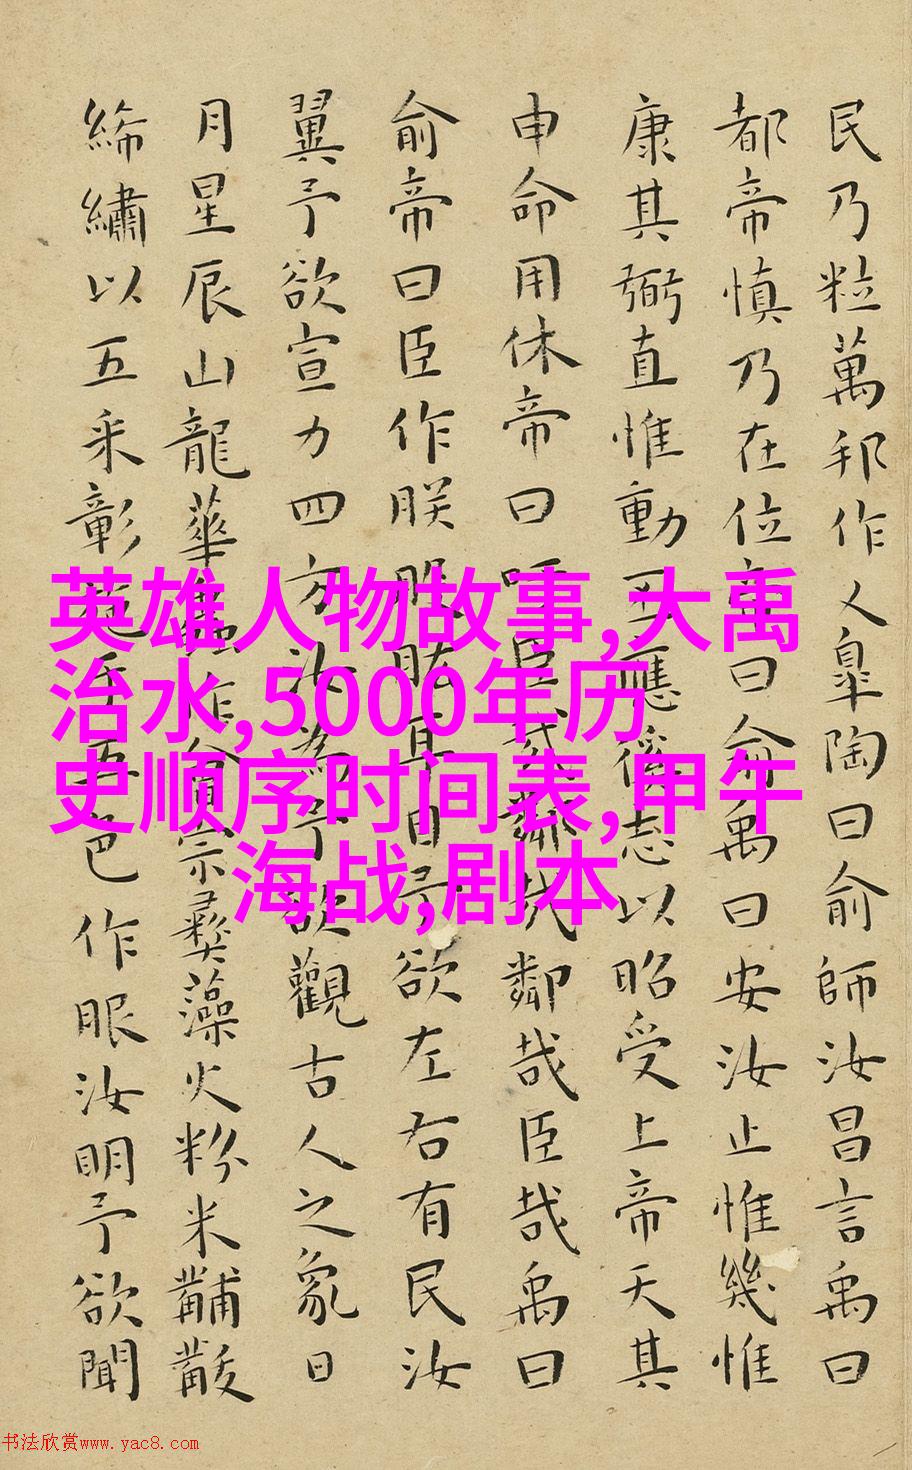 民乃粒萬邦作乂皐陶曰俞師汝昌言禹曰
都帝慎乃在位帝曰俞禹曰安汝止惟幾惟
康其弼直惟動丕應徯志以昭受上帝天其
申命用休帝曰吁臣哉鄰哉鄰哉臣哉禹曰
俞帝曰臣作朕股肱耳目予欲左右有民汝
翼予欲宣力四方汝為予欲觀古人之象日
月星辰山龍華蟲作會宗彝藻火粉米黼黻
絺繡以五采彰施于五色作服汝明予欲聞
英雄人物故事,大禹
治水,5000年历
史顺序时间表,甲午
海战,剧本
书法欣赏www.yac8.com